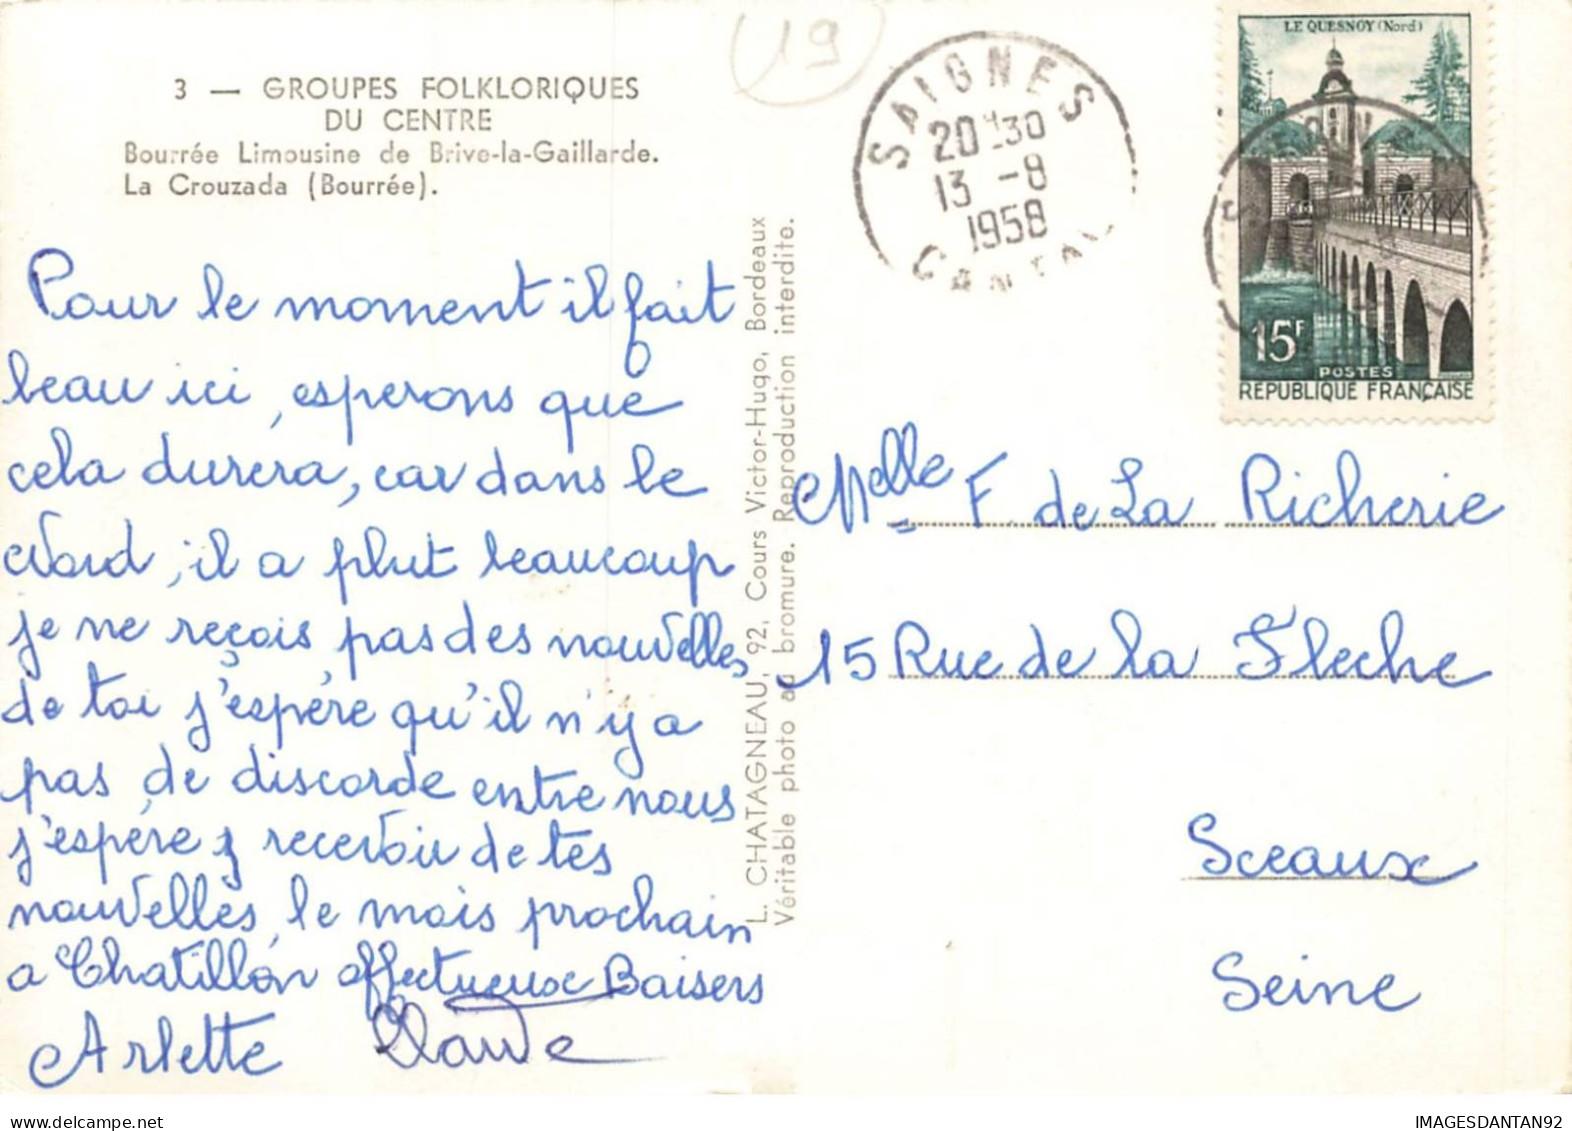 19
3 — GROUPES FOLKLORIQUES
DU CENTRE
Bourrée Limousine de Brive-la-Gaillarde.
La Crouzada (Bourrée).
Pour le moment il fait
beau ici, esperons que
cela durera, car dans le
Nord, il a plut beaucoup
je ne reçois pas des nouvelles
de toi j'espère qu'il n'y a
pas de discorde entre nous
j'espère recevoir de tes
nouvelles, le mois prochain
a Chatillon affectueux Baisers
Arlette Claude
L. CHATAGNEAU, 92, Cours Victor-Hugo, Bordeaux
Véritable photo au bromure. Reproduction interdite.
SAIGNES
20H30
13 -8
1958
CANTAL
LE QUESNOY (Nord)
15F
POSTES
RÉPUBLIQUE FRANÇAISE
Melle F de La Richerie
15 Rue de la Fleche
Sceaux
Seine
IMAGESDANTAN92